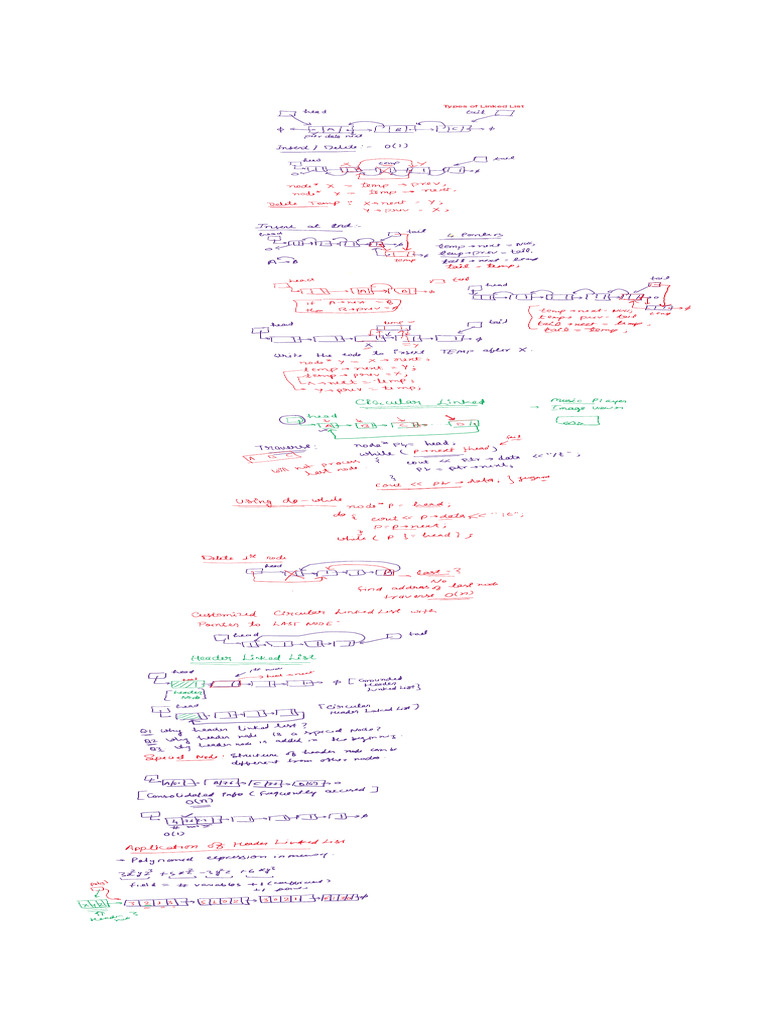 Types of Linked List
head
tail
A
B
C
prev data next
Insert / Delete :- O(1)
head
X
temp
Y
tail
node* X = temp → prev;
node* Y = temp → next;
Delete Temp : X→next = Y;
Y→prev = X;
Insert at End:-
head
tail
4 Pointers
temp→next = NULL;
temp→prev = tail;
tail→next = temp
tail = temp;
A → B
temp
head
A
B
tail
if A→next = B
then B→prev = A
head
tail
temp→next = NULL;
temp→prev = tail
tail→next = temp;
tail = temp;
temp
head
temp
tail
X
= Y
Write the code to insert TEMP after X.
node* Y = X→next;
temp→next = Y;
temp→prev = X;
X→next = temp;
Y→prev = temp;
Circular Linked
→ Music Player
Image Viewer
head
A
B
C
D
Traverse:
node* ptr = head;
while (p→next ≠ head)
A B C
{ cout << ptr→data << "\t";
ptr = ptr→next;
will not process
last node
}
cout << ptr→data;
Using do-while
node* p = head;
do { cout << p→data << "\t";
p = p→next;
while (p != head);
Delete 1st node
head
last = ?
No
find address of last node
traverse O(n)
Customized Circular Linked List with
Pointer to LAST NODE
head
tail
Header Linked List
head
1st node
head→next
Header
Node
[Grounded
Header
Linked List]
head
[Circular
Header Linked List]
Q1 Why header linked list?
Q2 Why header node is a special node?
Q3 Why header node is added in the beginning.
Special Node: Structure of header node can be
different from other nodes.
[Consolidated Info (frequently accessed]
O(n)
O(1)
Application of Header Linked List
→ Polynomial expression in memory.
field = # variables + 1 (coefficient)
Header